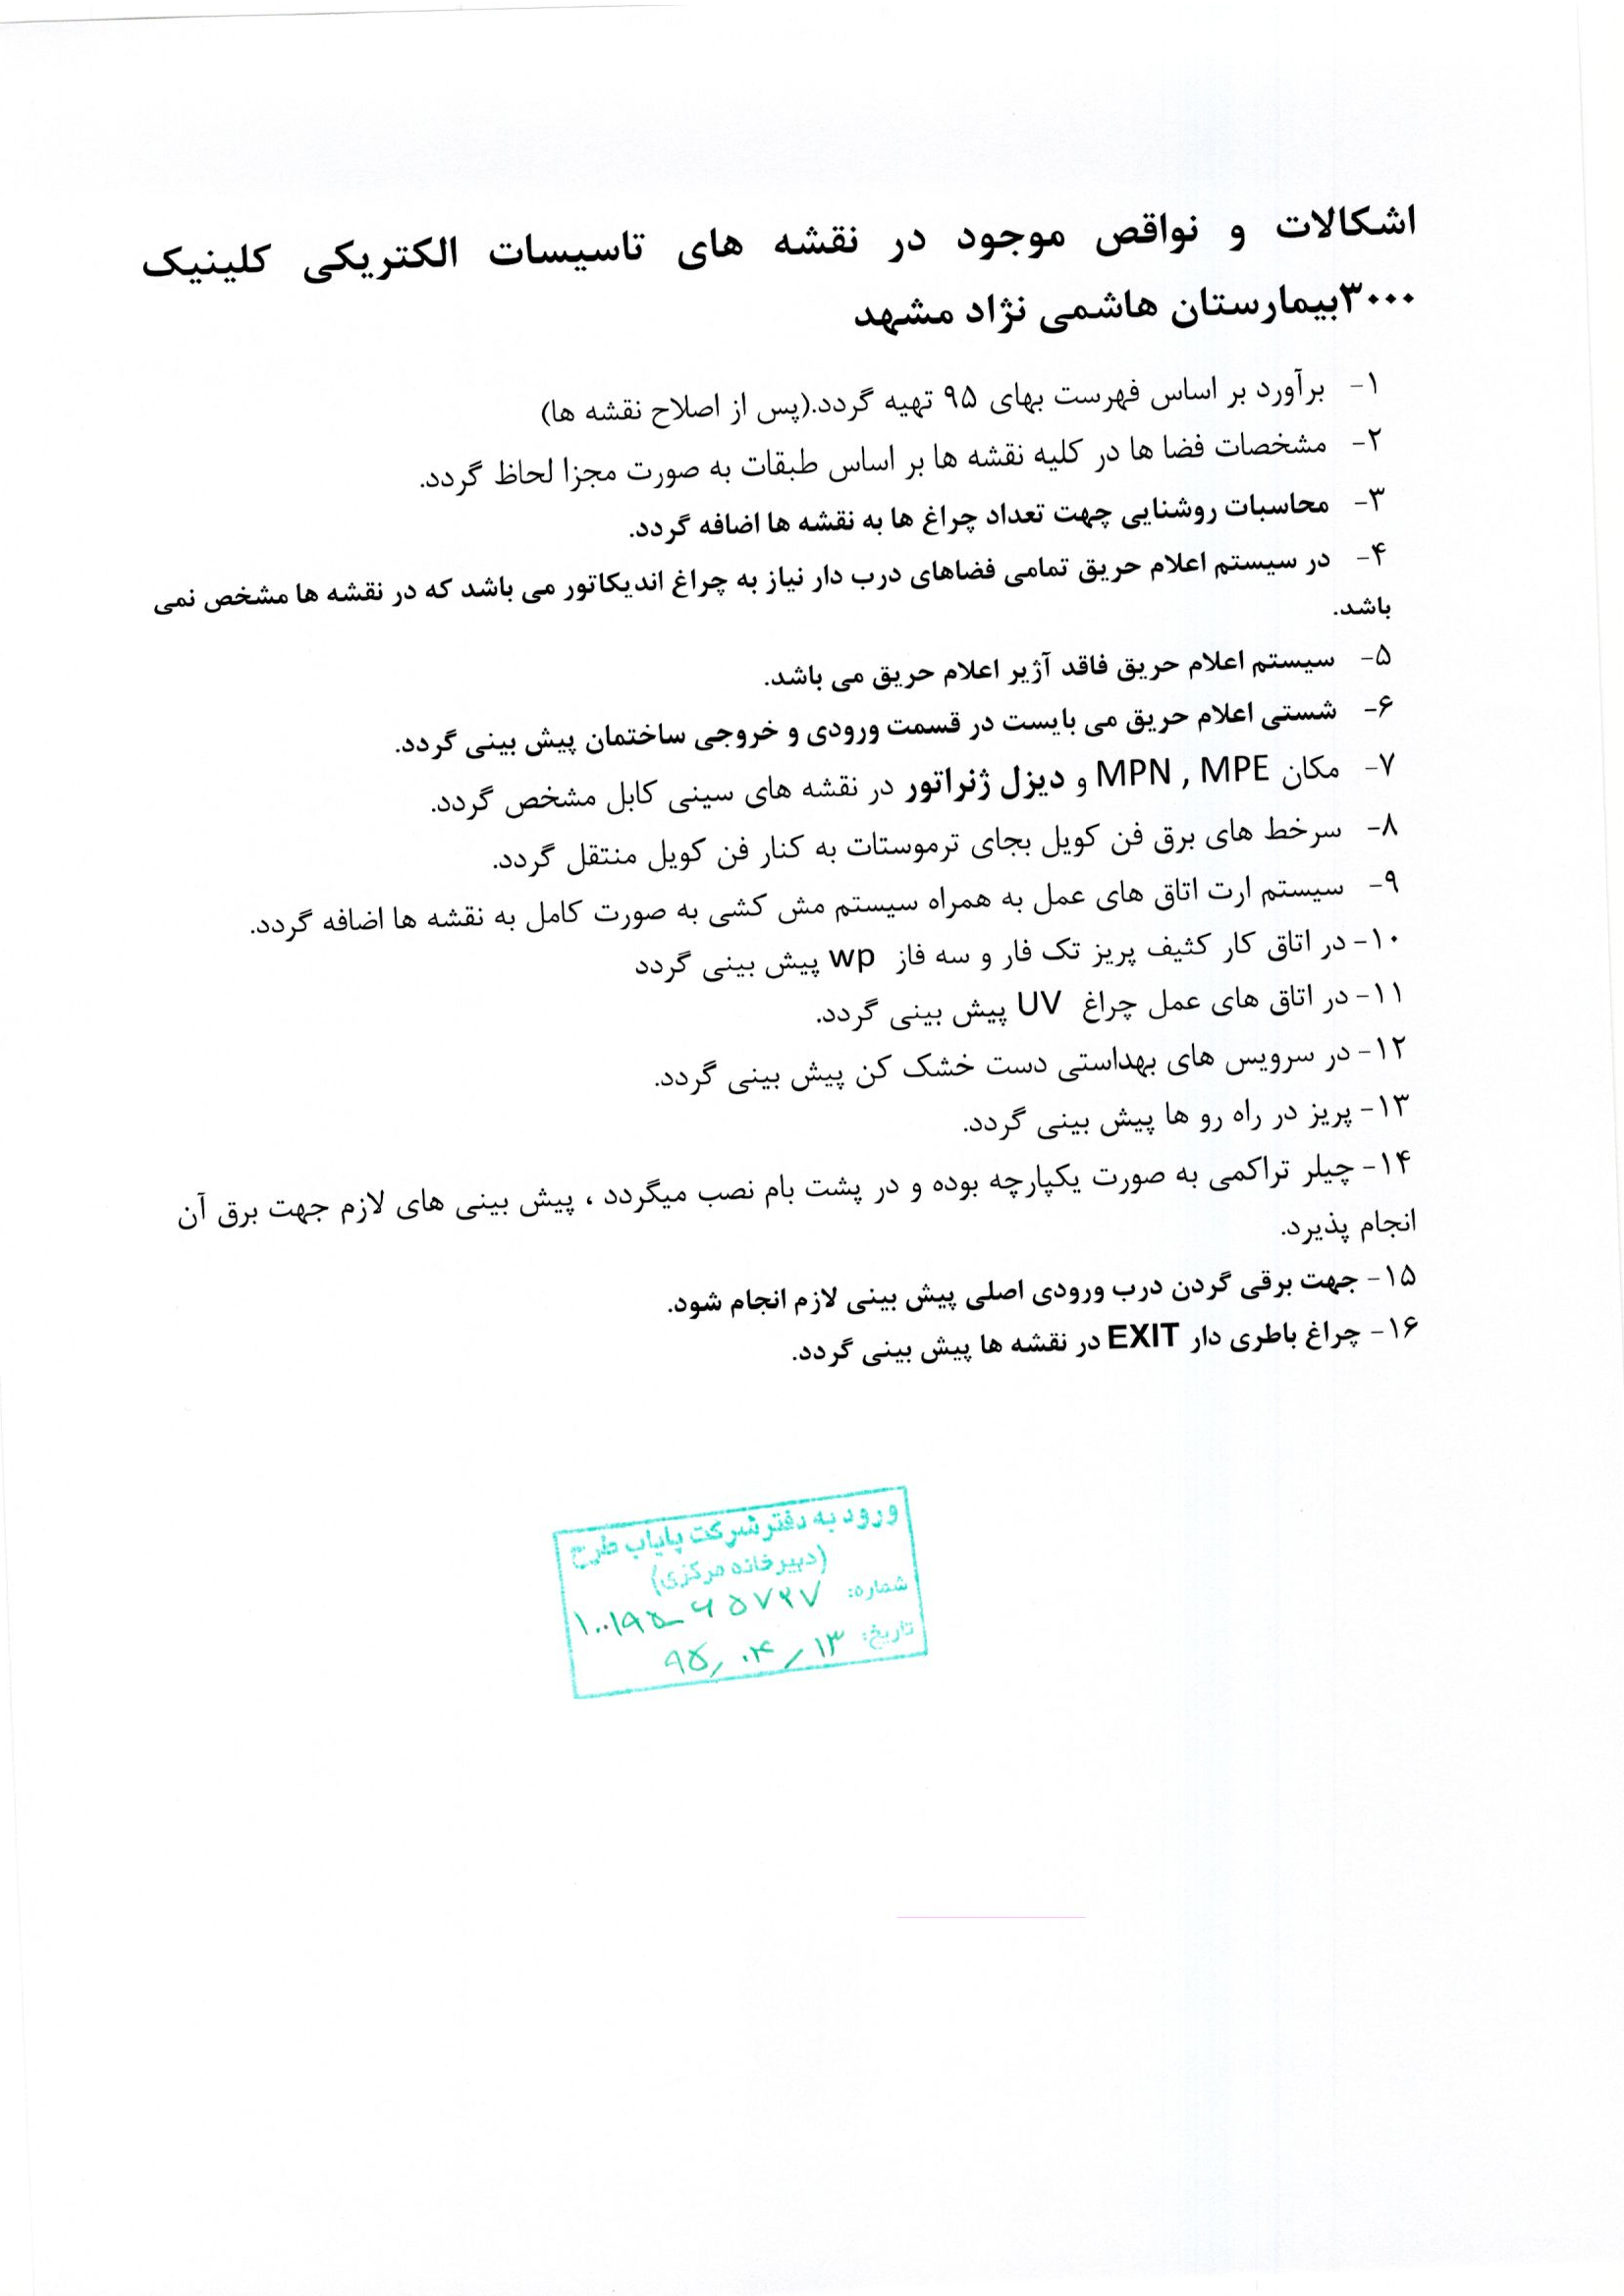 اشکالات و نواقص موجود در نقشه های تاسیسات الکتریکی کلینیک
۳۰۰۰بیمارستان هاشمی نژاد مشهد
۱- برآورد بر اساس فهرست بهای ۹۵ تهیه گردد.(پس از اصلاح نقشه ها)
۲- مشخصات فضا ها در کلیه نقشه ها بر اساس طبقات به صورت مجزا لحاظ گردد.
۳- محاسبات روشنایی چهت تعداد چراغ ها به نقشه ها اضافه گردد.
۴- در سیستم اعلام حریق تمامی فضاهای درب دار نیاز به چراغ اندیکاتور می باشد که در نقشه ها مشخص نمی
باشد.
۵- سیستم اعلام حریق فاقد آژیر اعلام حریق می باشد.
۶- شستی اعلام حریق می بایست در قسمت ورودی و خروجی ساختمان پیش بینی گردد.
۷- مکان MPN , MPE و دیزل ژنراتور در نقشه های سینی کابل مشخص گردد.
۸- سرخط های برق فن کویل بجای ترموستات به کنار فن کویل منتقل گردد.
۹- سیستم ارت اتاق های عمل به همراه سیستم مش کشی به صورت کامل به نقشه ها اضافه گردد.
۱۰- در اتاق کار کثیف پریز تک فار و سه فاز wp پیش بینی گردد
۱۱- در اتاق های عمل چراغ UV پیش بینی گردد.
۱۲- در سرویس های بهداستی دست خشک کن پیش بینی گردد.
۱۳- پریز در راه رو ها پیش بینی گردد.
۱۴- چیلر تراکمی به صورت یکپارچه بوده و در پشت بام نصب میگردد ، پیش بینی های لازم جهت برق آن
انجام پذیرد.
۱۵- جهت برقی گردن درب ورودی اصلی پیش بینی لازم انجام شود.
۱۶- چراغ باطری دار EXIT در نقشه ها پیش بینی گردد.
ورود به دفتر شرکت پایاب طرح
(دبیرخانه مرکزی)
شماره:
تاریخ: ۹۵/۰۴/۱۳